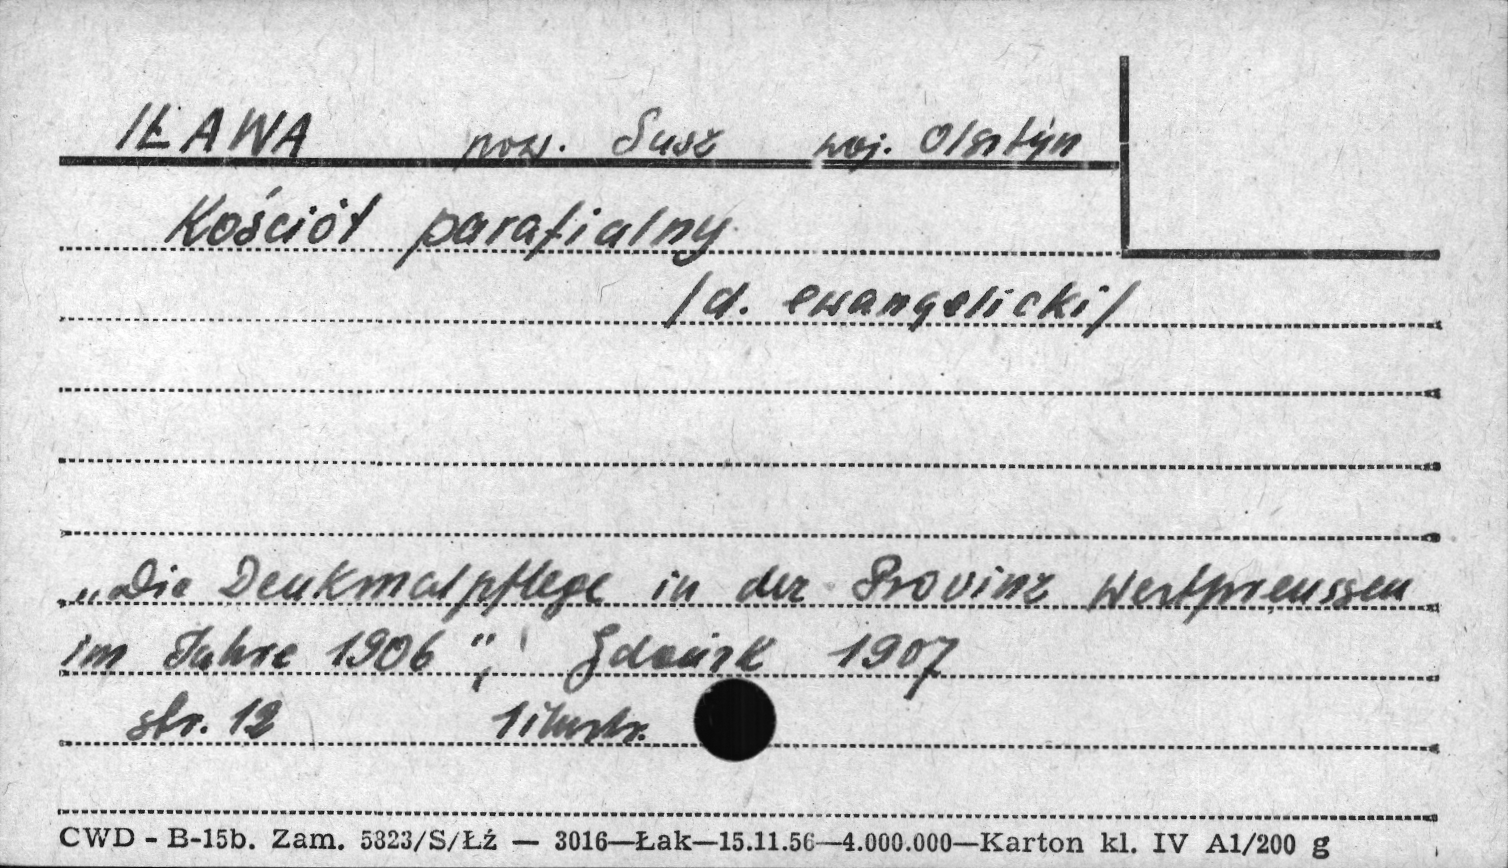 IŁAWA pow. Susz woj. Olsztyn
Kościół parafialny
/d. ewangelicki/
„Die Denkmalpflege in der Provinz Westpreussen
im Jahre 1906", Gdańsk 1907
str. 12 1 ilustr.
CWD - B-15b. Zam. 5323/S/Łź — 3016—Łak—15.11.56—4.000.000—Karton kl. IV A1/200 g